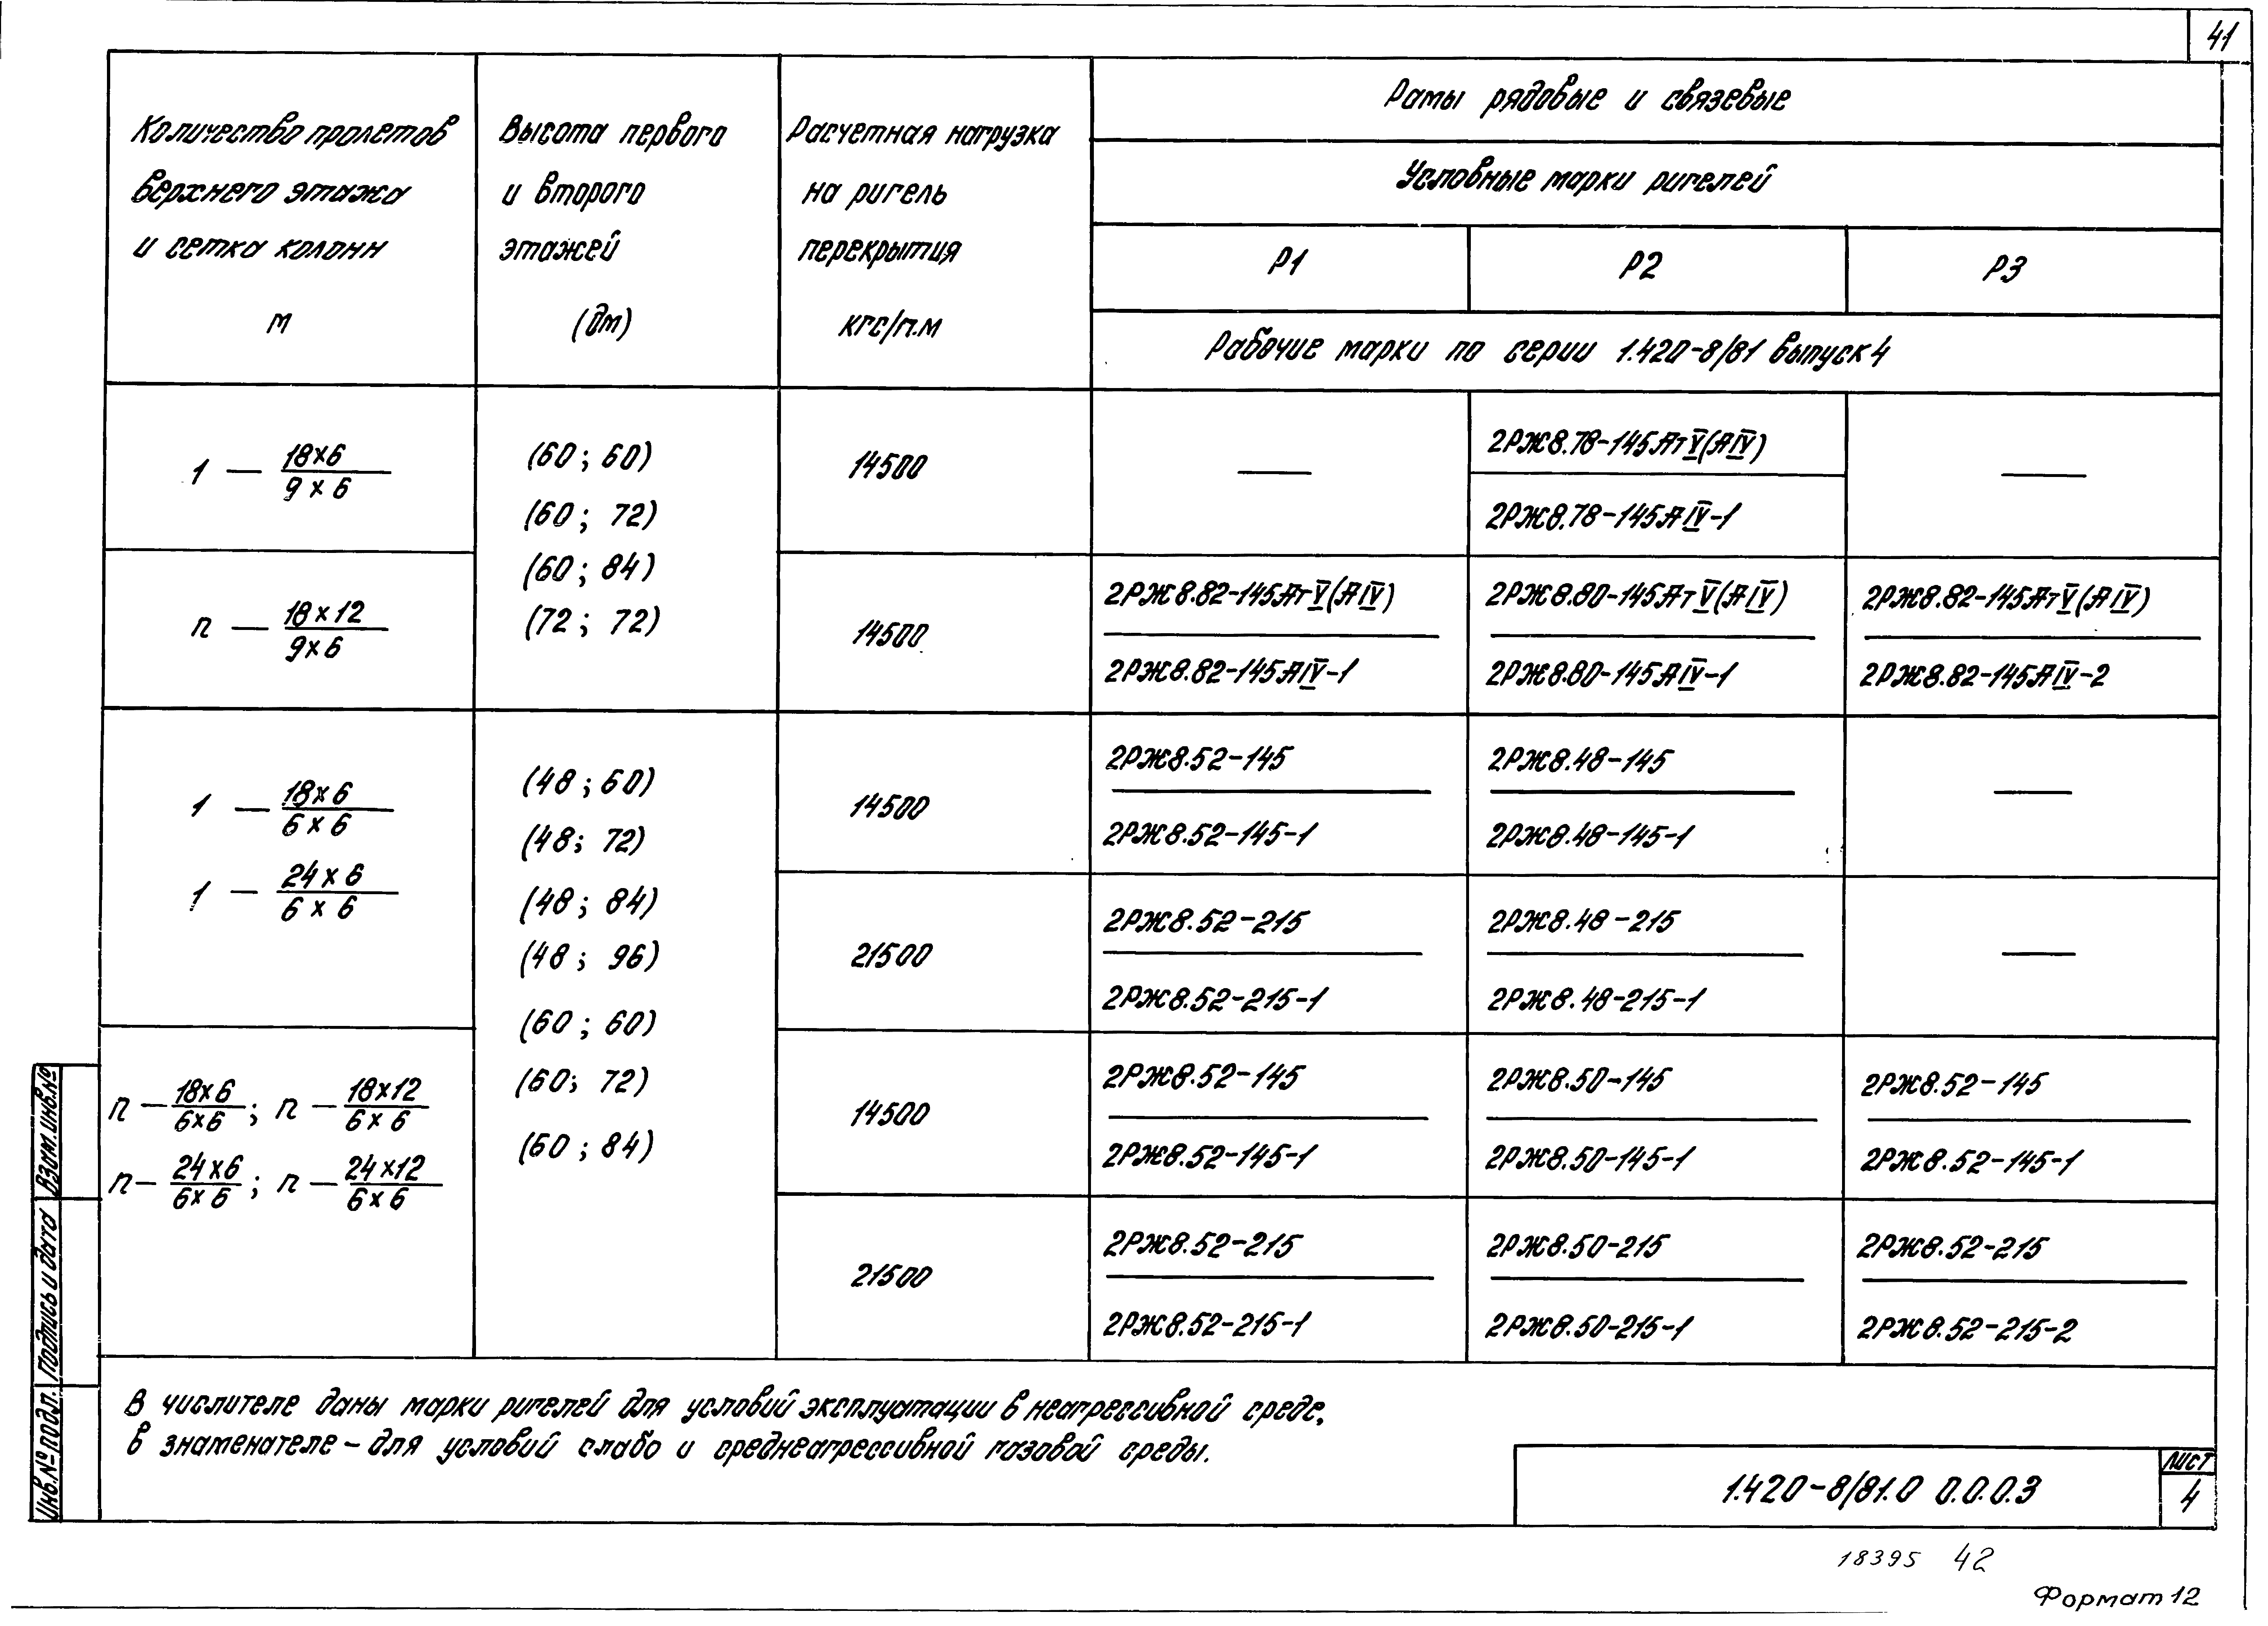 41
Количество пролетов
верхнего этажа
и сетка колонн
м
Высота первого
и второго
этажей
(дм)
Расчетная нагрузка
на ригель
перекрытия
кгс/п.м
Рамы рядовые и связевые
Условные марки ригелей
Р1 Р2 Р3
Рабочие марки по серии 1.420-8/81 выпуск 4
1 — 18×6
9×6
(60; 60)
(60; 72)
14500
—
2РЖ8.78-145АтV(АIV)
2РЖ8.78-145АIV-1
—
n — 18×12
9×6
(60; 84)
(72; 72)
14500
2РЖ8.82-145АтV(АIV) 2РЖ8.80-145АтV(АIV) 2РЖ8.82-145АтV(АIV)
2РЖ8.82-145АIV-1 2РЖ8.80-145АIV-1 2РЖ8.82-145АIV-2
1 — 18×6
6×6
1 — 24×6
6×6
(48; 60)
(48; 72)
(48; 84)
(48; 96)
(60; 60)
(60; 72)
(60; 84)
14500
2РЖ8.52-145 2РЖ8.48-145 —
2РЖ8.52-145-1 2РЖ8.48-145-1
21500
2РЖ8.52-215 2РЖ8.48-215 —
2РЖ8.52-215-1 2РЖ8.48-215-1
n — 18×6 ; n — 18×12
6×6 6×6
n — 24×6 ; n — 24×12
6×6 6×6
14500
2РЖ8.52-145 2РЖ8.50-145 2РЖ8.52-145
2РЖ8.52-145-1 2РЖ8.50-145-1 2РЖ8.52-145-1
21500
2РЖ8.52-215 2РЖ8.50-215 2РЖ8.52-215
2РЖ8.52-215-1 2РЖ8.50-215-1 2РЖ8.52-215-2
В числителе даны марки ригелей для условий эксплуатации в неагрессивной среде,
в знаменателе – для условий слабо и среднеагрессивной газовой среды.
Инв.№ подл. Подпись и дата Взам.инв.№
1.420-8/81.0 0.0.0.3
Лист
4
18395 42
Формат 12